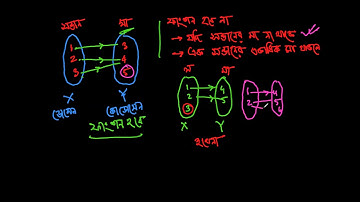 সন্তান মা
1 3
2 4
3 5
X Y
ডোমেন কোডোমেন
ফাংশন হবে
ফাংশন হবে না
→ যদি সন্তানের মা না থাকে
→ এক সন্তানের একাধিক মা থাকলে
স মা
1 4
2 5
3
X Y
হবেনা
1 4
2 5
6